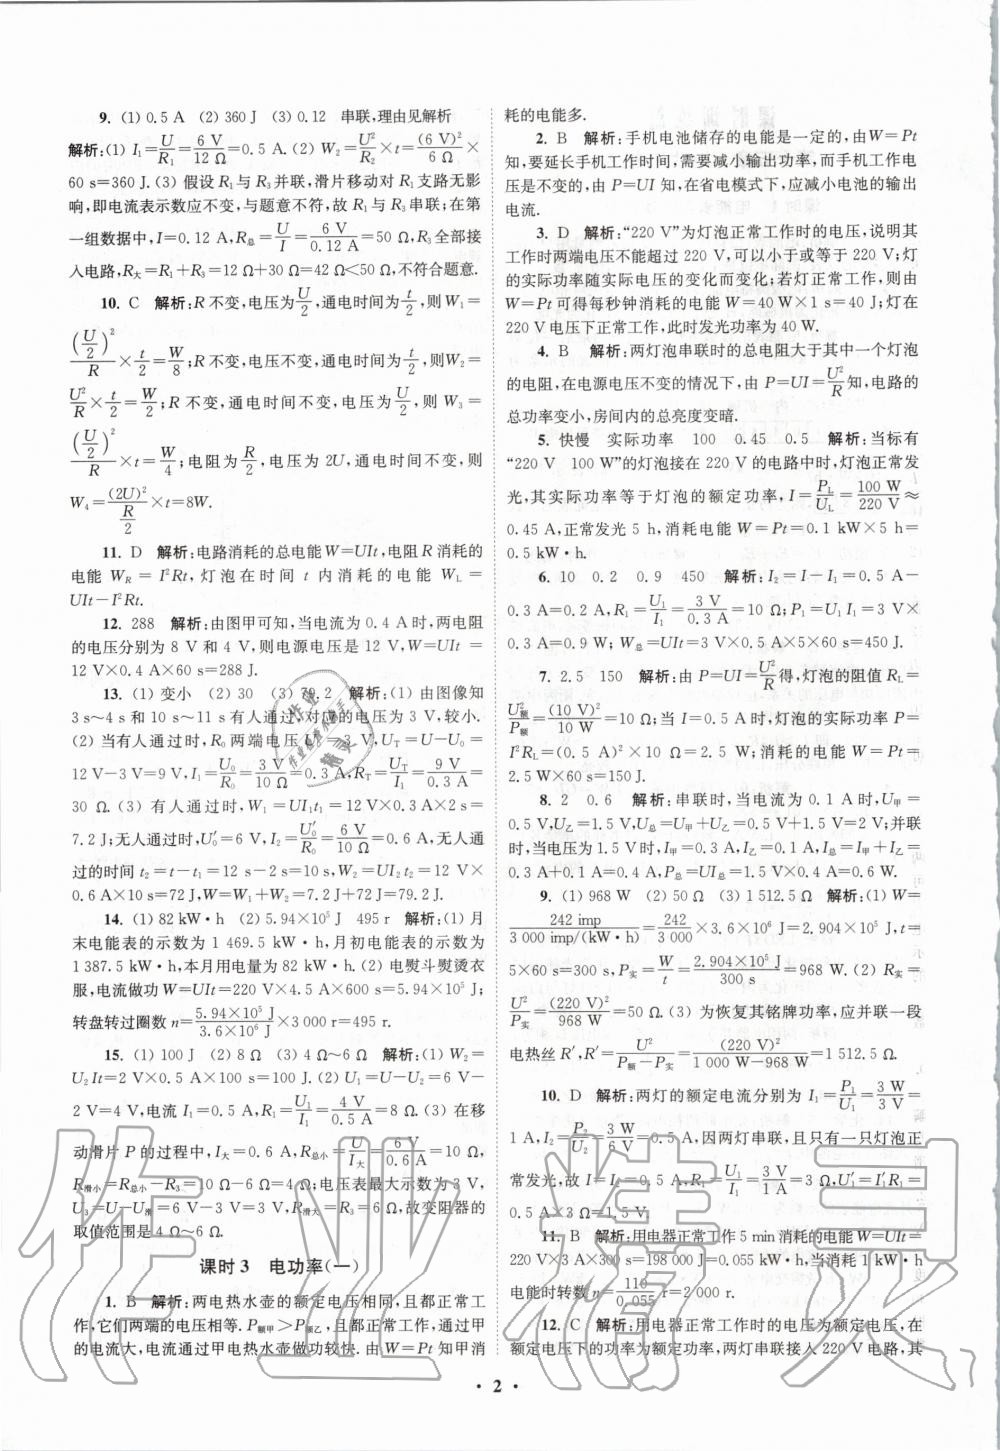 9. (1) 0.5 A (2) 360 J (3) 0.12 串联,理由见解析
解析:(1) I₁=U/R₁=6 V/12 Ω=0.5 A. (2) W₂=U²/R₂×t=(6 V)²/6 Ω×
60 s=360 J. (3) 假设 R₁与 R₃并联,滑片移动对 R₁支路无影
响,即电流表示数应不变,与题意不符,故 R₁与 R₃串联;在第
一组数据中,I=0.12 A,R总=U/I=6 V/0.12 A=50 Ω,R₃全部接
入电路,R大=R₁+R₃=12 Ω+30 Ω=42 Ω<50 Ω,不符合题意.
10. C 解析:R 不变,电压为U/2,通电时间为t/2,则 W₁=
(U/2)²/R×t/2=W/8;R 不变,电压不变,通电时间为t/2,则 W₂=
U²/R×t/2=W/2;R 不变,通电时间不变,电压为U/2,则 W₃=
(U/2)²/R×t=W/4;电阻为R/2,电压为 2U,通电时间不变,则
W₄=(2U)²/(R/2)×t=8W.
11. D 解析:电路消耗的总电能 W=UIt,电阻 R 消耗的
电能 W_R=I²Rt,灯泡在时间 t 内消耗的电能 W_L=
UIt-I²Rt.
12. 288 解析:由图甲可知,当电流为 0.4 A 时,两电阻
的电压分别为 8 V 和 4 V,则电源电压为 12 V,W=UIt=
12 V×0.4 A×60 s=288 J.
13. (1) 变小 (2) 30 (3) 79.2 解析:(1) 由图像知
3 s~4 s 和 10 s~11 s 有人通过,对应的电压为 3 V,较小.
(2) 当有人通过时,R₀两端电压 U₀=3 V,U_T=U-U₀=
12 V-3 V=9 V,I₁=U₀/R₀=3 V/10 Ω=0.3 A,R_T=U_T/I₁=9 V/0.3 A=
30 Ω. (3) 有人通过时,W₁=UI₁t₁=12 V×0.3 A×2 s=
7.2 J;无人通过时,U₀′=6 V,I₂=U₀′/R₀=6 V/10 Ω=0.6 A,无人通
过的时间 t₂=t-t₁=12 s-2 s=10 s,W₂=UI₂t₂=12 V×
0.6 A×10 s=72 J,W=W₁+W₂=7.2 J+72 J=79.2 J.
14. (1) 82 kW·h (2) 5.94×10⁵ J 495 r 解析:(1) 月
末电能表的示数为 1 469.5 kW·h,月初电能表的示数为
1 387.5 kW·h,本月用电量为 82 kW·h. (2) 电熨斗熨烫衣
服,电流做功 W=UIt=220 V×4.5 A×600 s=5.94×10⁵ J;
转盘转过圈数 n=5.94×10⁵ J/3.6×10⁶ J×3 000 r=495 r.
15. (1) 100 J (2) 8 Ω (3) 4 Ω~6 Ω 解析:(1) W₂=
U₂It=2 V×0.5 A×100 s=100 J. (2) U₁=U-U₂=6 V-
2 V=4 V,电流 I=0.5 A,R₁=U₁/I₁=4 V/0.5 A=8 Ω. (3) 在移
动滑片 P 的过程中,I大=0.6 A,R总小=U/I大=6 V/0.6 A=10 Ω,
R滑小=R总小-R₃=10 Ω-6 Ω=4 Ω;电压表最大示数为 3 V,
U₃=U-U滑=6 V-3 V=3 V,R滑大=R₃=6 Ω,故变阻器的
取值范围是 4 Ω~6 Ω.
课时 3 电功率(一)
1. B 解析:两电热水壶的额定电压相同,且都正常工
作,它们两端的电压相等. P额甲>P额乙,且都正常工作,通过甲
的电流大,电流通过甲电热水壶做功较快. 由 W=Pt 知甲消
耗的电能多.
2. B 解析:手机电池储存的电能是一定的,由 W=Pt
知,要延长手机工作时间,需要减小输出功率,而手机工作电
压是不变的,由 P=UI 知,在省电模式下,应减小电池的输出
电流.
3. D 解析:“220 V”为灯泡正常工作时的电压,说明其
工作时两端电压不能超过 220 V,可以小于或等于 220 V;灯
的实际功率随实际电压的变化而变化;若灯正常工作,则由
W=Pt 可得每秒钟消耗的电能 W=40 W×1 s=40 J;灯在
220 V 电压下正常工作,此时发光功率为 40 W.
4. B 解析:两灯泡串联时的总电阻大于其中一个灯泡
的电阻,在电源电压不变的情况下,由 P=UI=U²/R知,电路的
总功率变小,房间内的总亮度变暗.
5. 快慢 实际功率 100 0.45 0.5 解析:当标有
“220 V 100 W”的灯泡接在 220 V 的电路中时,灯泡正常发
光,其实际功率等于灯泡的额定功率,I=P_L/U_L=100 W/220 V≈
0.45 A,正常发光 5 h,消耗电能 W=Pt=0.1 kW×5 h=
0.5 kW·h.
6. 10 0.2 0.9 450 解析:I₂=I-I₁=0.5 A-
0.3 A=0.2 A,R₁=U₁/I₁=3 V/0.3 A=10 Ω;P₁=U₁I₁=3 V×
0.3 A=0.9 W;W总=UIt=3 V×0.5 A×5×60 s=450 J.
7. 2.5 150 解析:由 P=UI=U²/R得,灯泡的阻值 R_L=
U额²/P额=(10 V)²/10 W=10 Ω;当 I=0.5 A 时,灯泡的实际功率 P=
I²R_L=(0.5 A)²×10 Ω=2.5 W;消耗的电能 W=Pt=
2.5 W×60 s=150 J.
8. 2 0.6 解析:串联时,当电流为 0.1 A 时,U甲=
0.5 V,U乙=1.5 V,U总=U甲+U乙=0.5 V+1.5 V=2 V;并联
时,当电压为 1.5 V 时,I甲=0.3 A,I乙=0.1 A,I总=I甲+I乙=
0.3 A+0.1 A=0.4 A,P总=UI总=1.5 V×0.4 A=0.6 W.
9. (1) 968 W (2) 50 Ω (3) 1 512.5 Ω 解析:(1) W=
242 imp/3 000 imp/(kW·h)=242/3 000×3.6×10⁶ J=2.904×10⁵ J,t=
5×60 s=300 s,P实=W/t=2.904×10⁵ J/300 s=968 W. (2) R实=
U²/P实=(220 V)²/968 W=50 Ω. (3) 为恢复其铭牌功率,应并联一段
电热丝 R′,R′=U²/(P额-P实)=(220 V)²/(1 000 W-968 W)=1 512.5 Ω.
10. D 解析:两灯的额定电流分别为 I₁=P₁/U₁=3 W/3 V=
1 A,I₂=P₂/U₂=3 W/6 V=0.5 A,因两灯串联,且只有一只灯泡正
常发光,故 I=I₂=0.5 A,R₁=U₁/I₁=3 V/1 A=3 Ω,U₁′=I′R₁=
0.5 A×3 Ω=1.5 V.
11. B 解析:用电器正常工作 5 min 消耗的电能 W=UIt=
220 V×3 A×300 s=198 000 J=0.055 kW·h,当消耗 1 kW·h
电能时转数 n=110/0.055 r=2 000 r.
12. C 解析:用电器正常工作时的电压为额定电压,在
额定电压下的功率为额定功率,两灯串联接入 220 V 电路,其
· 2 ·
作业精灵